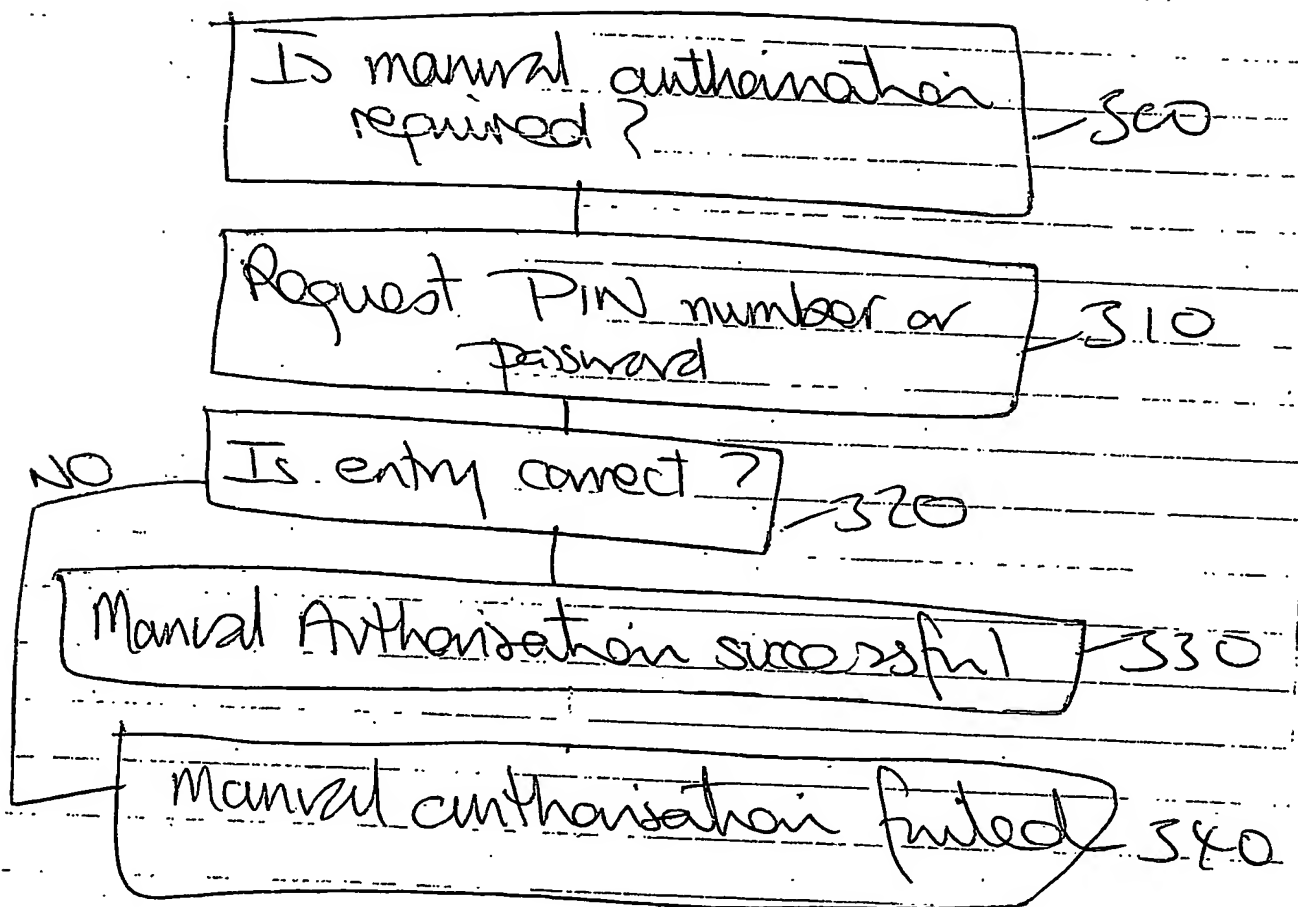 Is manual authorisation
required? 300
Request PIN number or 310
password
NO Is entry correct? 320
Manual Authorisation successful 330
Manual authorisation failed 340